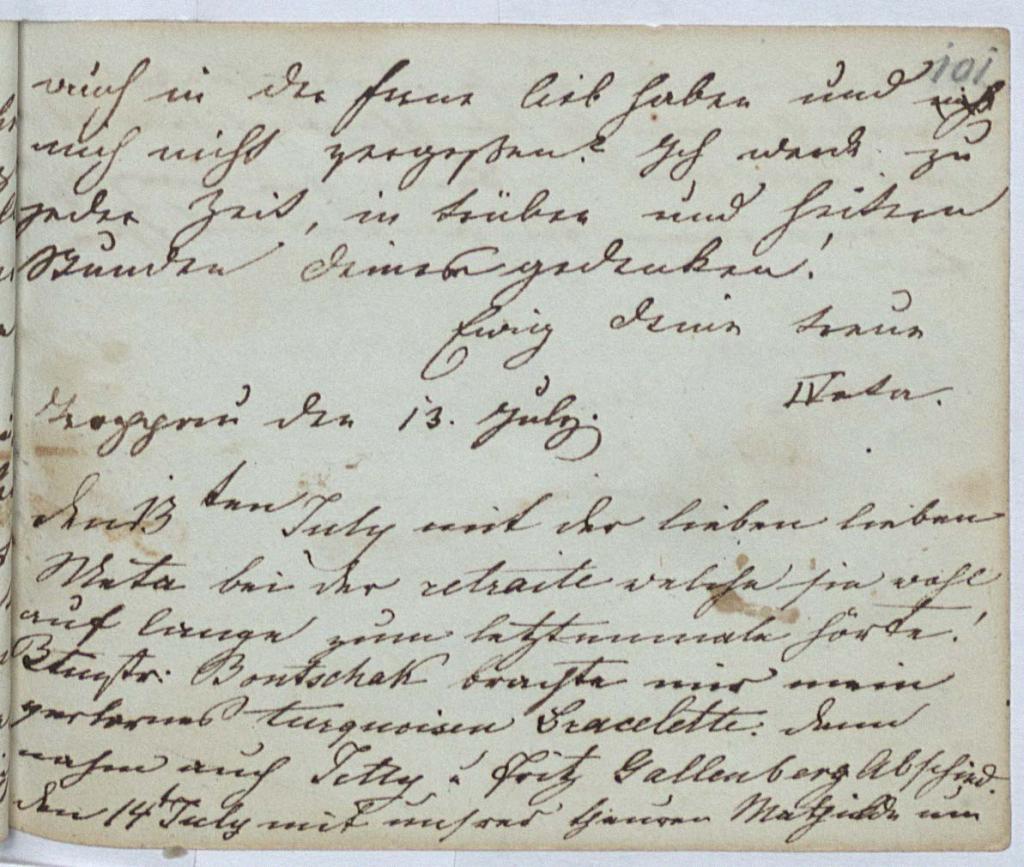 101
auch in der Ferne lieb haben und
mich nicht vergeßen? Ich werde zu
jeder Zeit, in trüben und heitern
Stunden deiner gedenken!
Ewig deine treue
Meta.
Troppau den 13. July.
den 13ten July mit der lieben lieben
Meta bei der retraite welche sie wohl
auf lange zum letztenmale hörte!
Bontschak brachte mir mein
verlornes turquoisen Bracelette. dann
nahm auch Tetty u Fritz Gallenberg Abschied.
den 14t July mit unsrer theuren Mathilde um